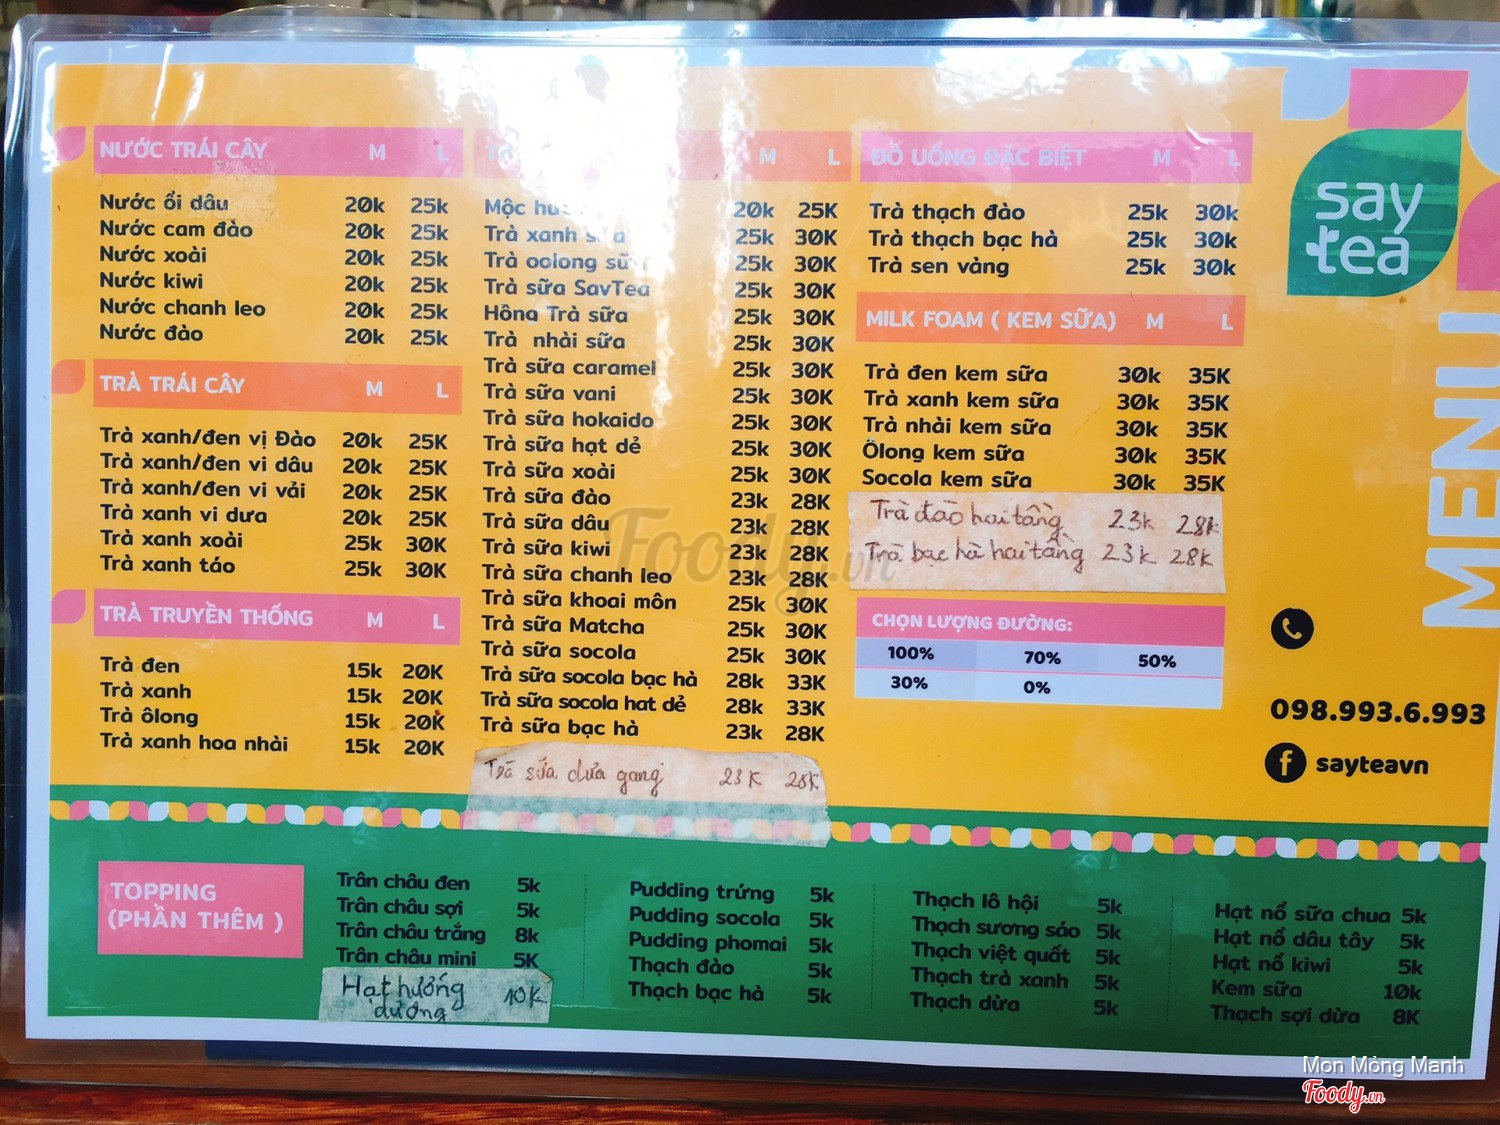 NƯỚC TRÁI CÂY M L
Nước ổi dâu 20k 25k
Nước cam đào 20k 25k
Nước xoài 20k 25k
Nước kiwi 20k 25k
Nước chanh leo 20k 25k
Nước đào 20k 25k
TRÀ TRÁI CÂY M L
Trà xanh/đen vị Đào 20k 25K
Trà xanh/đen vị dâu 20k 25K
Trà xanh/đen vị vải 20k 25K
Trà xanh vị dưa 20k 25K
Trà xanh xoài 25k 30K
Trà xanh táo 25k 30K
TRÀ TRUYỀN THỐNG M L
Trà đen 15k 20K
Trà xanh 15k 20K
Trà ôlong 15k 20K
Trà xanh hoa nhài 15k 20K
M L
Mộc 20k 25K
Trà xanh 25k 30K
Trà oolong sữa 25k 30K
Trà sữa SayTea 25k 30K
Hồng Trà sữa 25k 30K
Trà nhài sữa 25k 30K
Trà sữa caramel 25k 30K
Trà sữa vani 25k 30K
Trà sữa hokaido 25k 30K
Trà sữa hạt dẻ 25k 30K
Trà sữa xoài 25k 30K
Trà sữa đào 23k 28K
Trà sữa dâu 23k 28K
Trà sữa kiwi 23k 28K
Trà sữa chanh leo 23k 28K
Trà sữa khoai môn 25k 30K
Trà sữa Matcha 25k 30K
Trà sữa socola 25k 30K
Trà sữa socola bạc hà 28k 33K
Trà sữa socola hạt dẻ 28k 33K
Trà sữa bạc hà 23k 28K
Trà sữa dưa gang 23K 28K
ĐỒ UỐNG ĐẶC BIỆT M L
Trà thạch đào 25k 30k
Trà thạch bạc hà 25k 30k
Trà sen vàng 25k 30k
MILK FOAM ( KEM SỮA) M L
Trà đen kem sữa 30k 35K
Trà xanh kem sữa 30k 35K
Trà nhài kem sữa 30k 35K
Ôlong kem sữa 30k 35K
Socola kem sữa 30k 35K
Trà đào hai tầng 23k 28k
Trà bạc hà hai tầng 23k 28k
CHỌN LƯỢNG ĐƯỜNG:
100% 70% 50%
30% 0%
say
tea
MENU
098.993.6.993
f sayteavn
TOPPING
(PHẦN THÊM )
Trân châu đen 5k
Trân châu sợi 5k
Trân châu trắng 8k
Trân châu mini 5K
Hạt hướng 10K
dương
Pudding trứng 5k
Pudding socola 5k
Pudding phomai 5k
Thạch đào 5k
Thạch bạc hà 5k
Thạch lô hội 5k
Thạch sương sáo 5k
Thạch việt quất 5k
Thạch trà xanh 5k
Thạch dừa 5k
Hạt nổ sữa chua 5k
Hạt nổ dâu tây 5k
Hạt nổ kiwi 5k
Kem sữa 10k
Thạch sợi dừa 8K
Foody.vn
Mon Mỏng Manh
Foody.vn